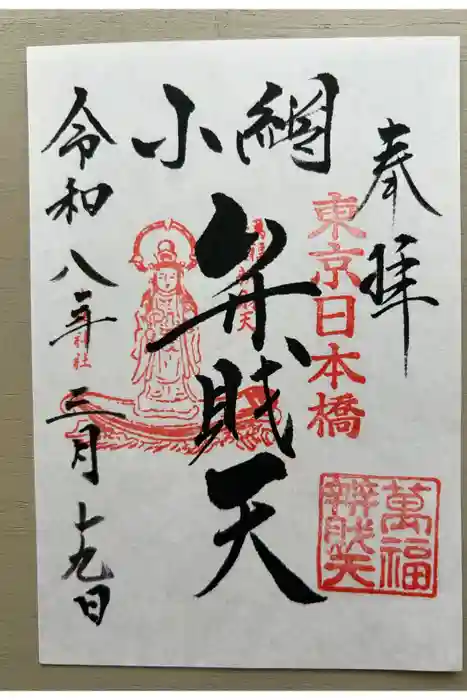 奉拝
東京日本橋
小網
弁財天
萬福
辨財天
令和八年三月十九日